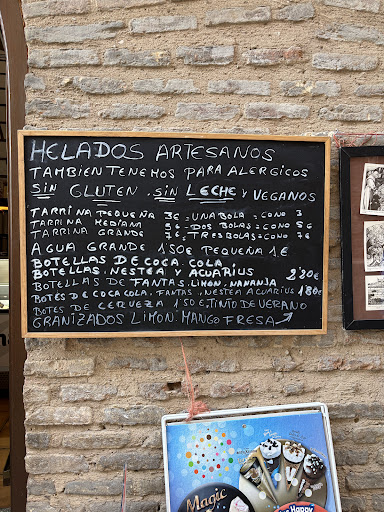 HELADOS ARTESANOS
TAMBIEN TENEMOS PARA ALERGICOS
SIN GLUTEN . SIN LECHE Y VEGANOS
TARRINA PEQUEÑA 3€ = UNA BOLA = CONO 3
TARRINA MEDIANA 5€ - DOS BOLAS = CONO 5€
TARRINA GRANDE 7€ TRES BOLAS = CONO 7€
AGUA GRANDE 1'50€ PEQUEÑA 1€
BOTELLAS DE COCA. COLA.
BOTELLAS. NESTEA Y ACUARIUS
BOTELLAS DE FANTAS. LIMON. NARANJA 2'20€
BOTES DE COCACOLA. FANTAS. NESTEA ACUARIUS 1'80€
BOTES DE CERVEZA 1'50 €. TINTO DE VERANO
GRANIZADOS LIMON. MANGO FRESA
Magic
Happy